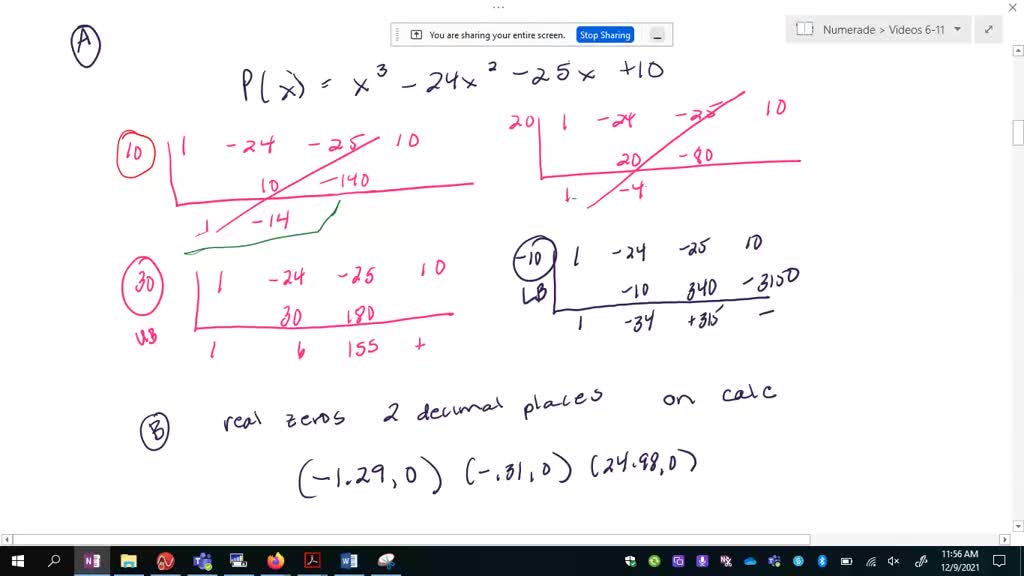 You are sharing your entire screen. Stop Sharing
Numerade > Videos 6-11
A
P(x) = x³ - 24x² - 25x + 10
10 1 -24 -25 10
10 -140
1 -14
20 1 -24 -25 10
20 -80
1 -4
30 1 -24 -25 10
UB 30 180
1 6 155 +
-10 1 -24 -25 10
LB -10 340 -3150
1 -34 +315 -
B real zeros 2 decimal places on calc
(-1.29, 0) (-.31, 0) (24.98, 0)
11:56 AM
12/9/2021